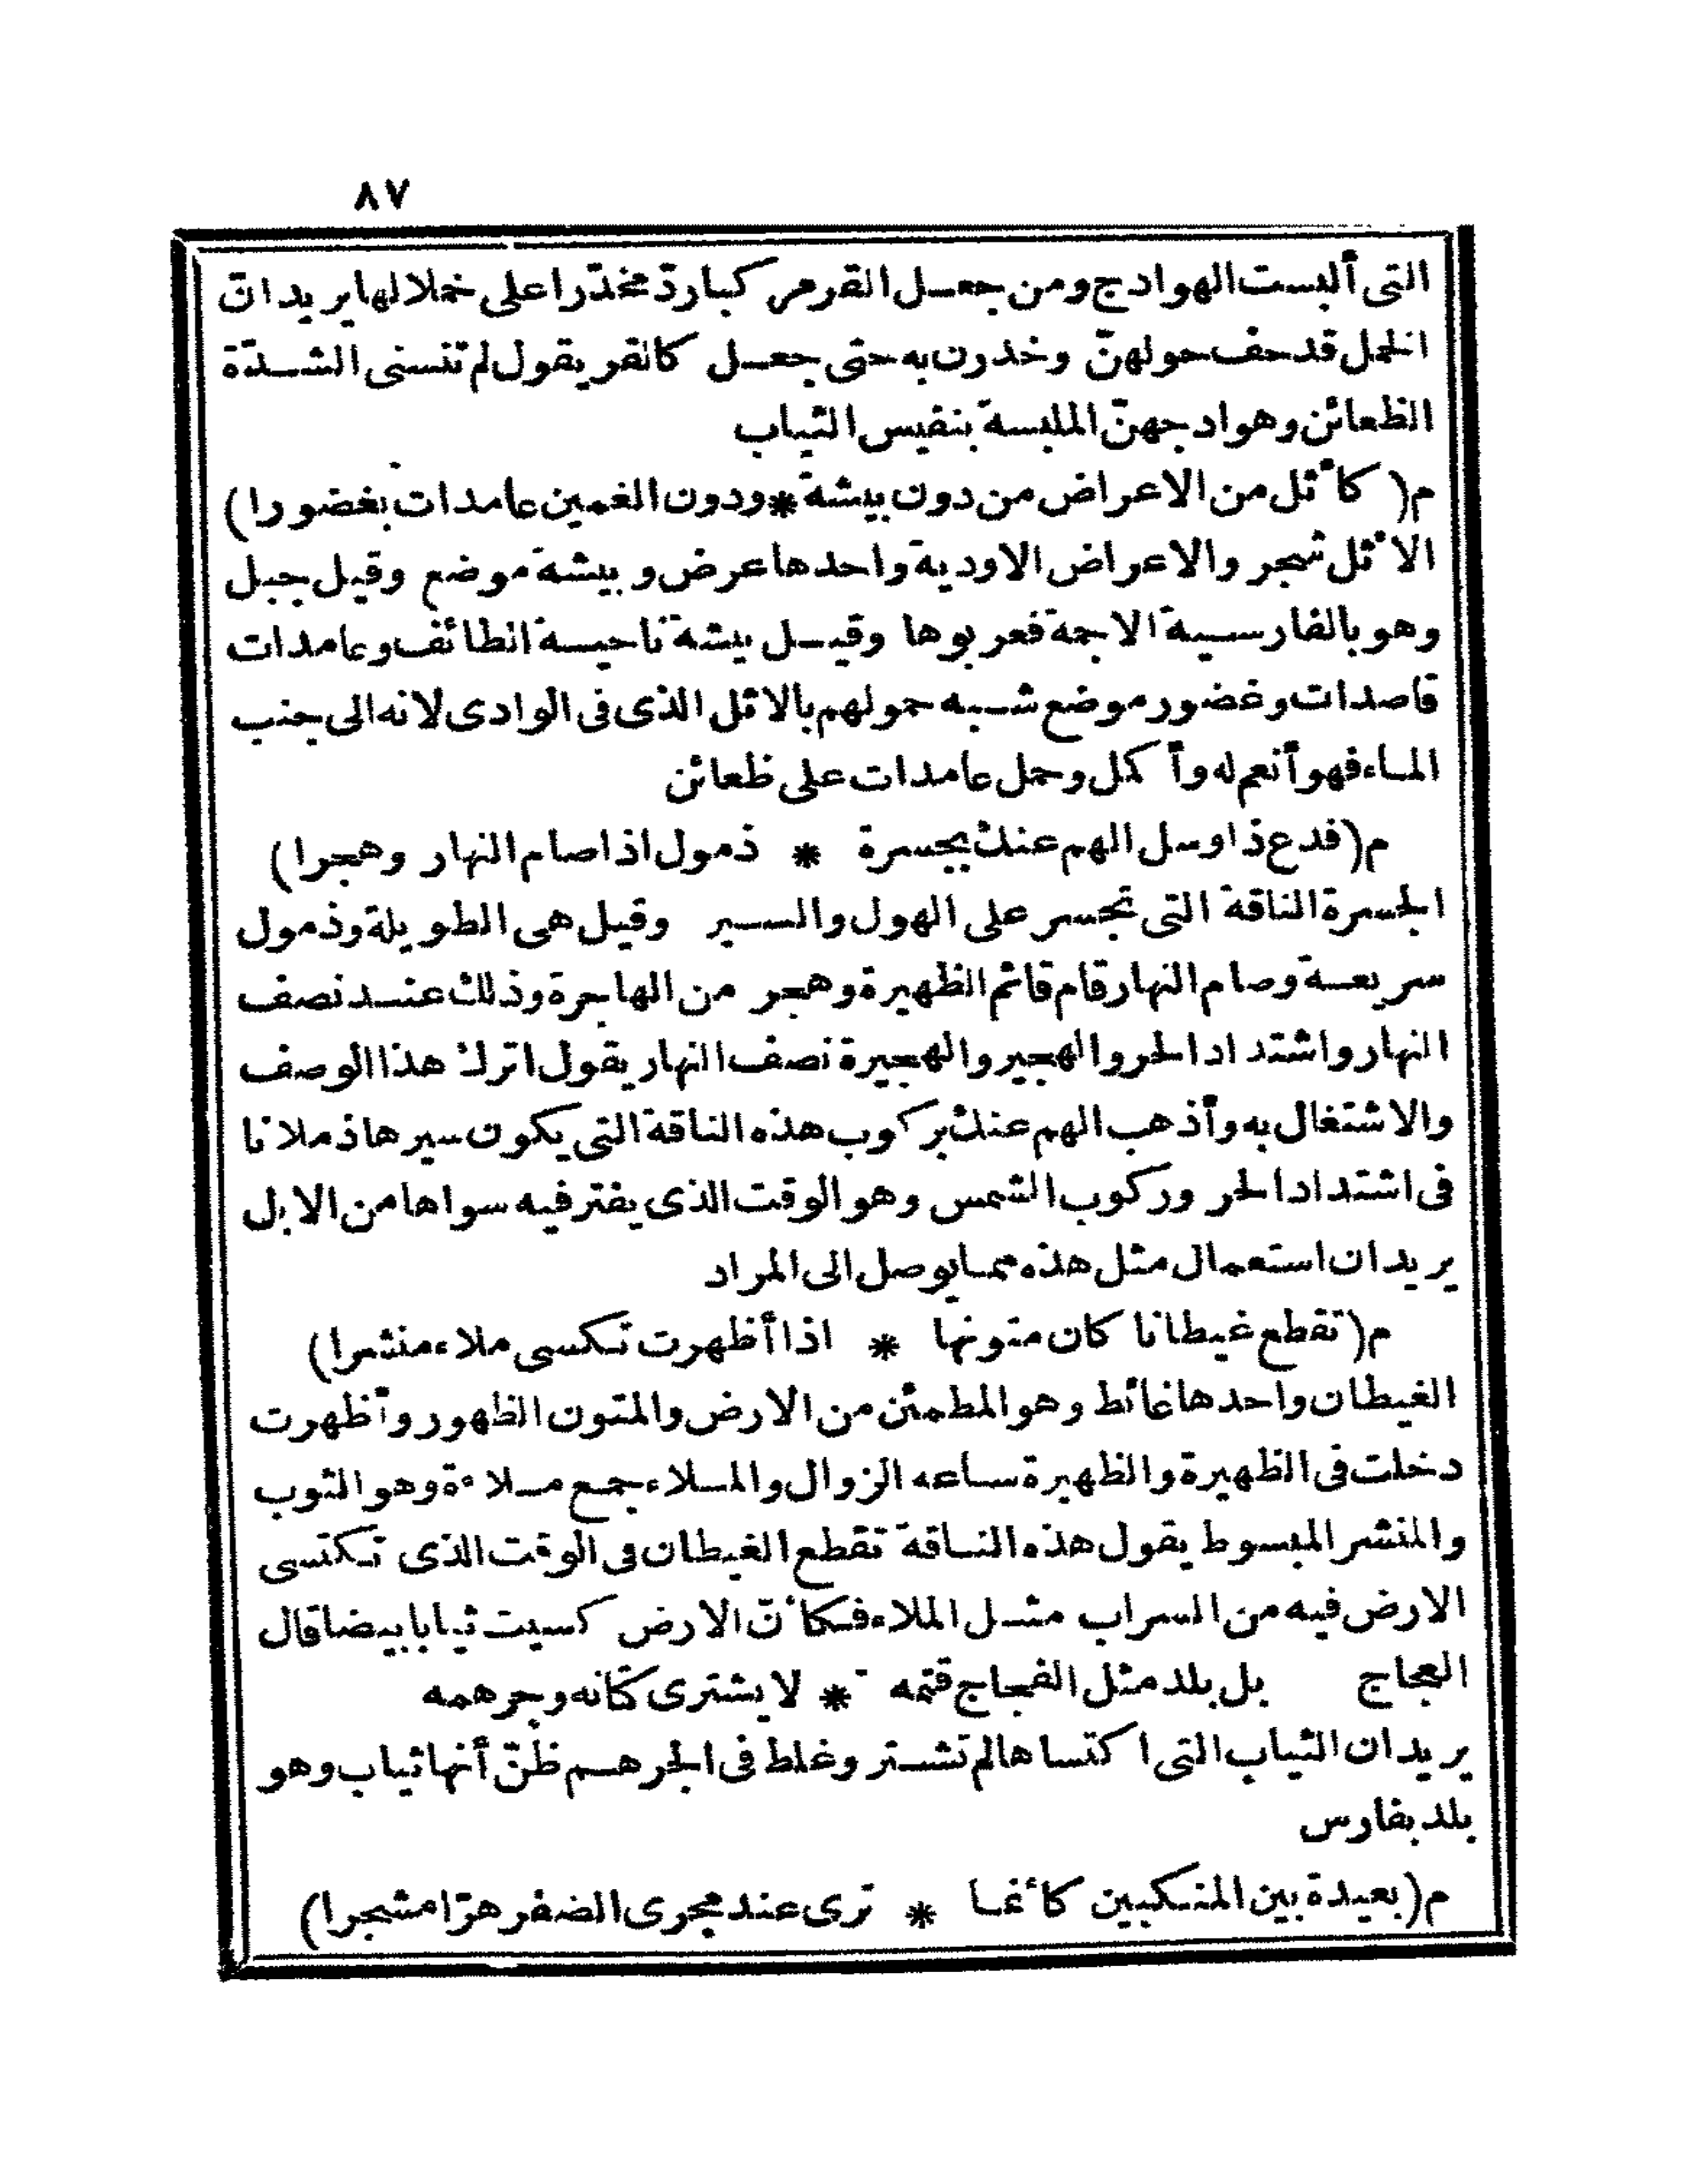 ٨٧
التى ألبست الهوادج ومن جعل القرمر كباردّ مخدّرا على خملا لها يريد انّ
الخمل قد حف حولهنّ وخدرن به حتى جعل كالقر يقول لم تنسنى الشدّة
الظعائن وهوادجهنّ الملبسة بنفيس الثياب
م( كأثل من الاعراض من دون بيشة * ودون الغمين عامدات بغضورا)
الأثل شجر والاعراض الاودية واحدها عرض وبيشة موضع وقيل جبل
وهو بالفارسية الاجمة فعربوها وقيل بيشة ناحيسة الطائف وعامدات
قاصدات وغضور موضع شبه حمولهم بالاثل الذى فى الوادى لانه الى جنب
الماء فهو أنعم له وأكمل وحمل عامدات على ظعائن
م(فدع ذا وسل الهم عنك بجسرة * ذمول اذا صام النهار وهجرا)
الجسرة الناقة التى تجسر على الهول والسير وقيل هى الطويلة وذمول
سريعسة وصام النهار قام قائم الظهيرة وهجر من الهاجرة وذلك عند نصف
النهار واشتداد الحر والهجير والهجيرة نصف النهار يقول اترك هذا الوصف
والاشتغال به وأذهب الهم عنك بركوب هذه الناقة التى يكون سيرها ذملانا
فى اشتداد الحر وركوب الشمس وهو الوقت الذى يفتر فيه سواها من الابل
يريد ان استعمال مثل هذه مما يوصل الى المراد
م(تقطع غيطانا كان متونها * اذا أظهرت تكسى ملاء منشرا)
الغيطان واحدها غائط وهو المطمئن من الارض والمتون الظهور وأظهرت
دخلت فى الظهيرة والظهيرة ساعه الزوال والملاء جمع ملاءة وهو الثوب
والمنشر المبسوط يقول هذه الناقة تقطع الغيطان فى الوقت الذى تكتسى
الارض فيه من السراب مثل الملاء فكأنّ الارض كسيت ثيابا بيضا قال
العجاج بل بلد مثل الفجاج قتمه * لا يشترى كتانه وجرهمه
يريد ان الثياب التى اكتساها لم تشتر وغلط فى الجرهم ظنّ أنها ثياب وهو
بلد بفارس
م(بعيدة بين المنكبين كأنما * ترى عند مجرى الضفر هرّا مشجرا)